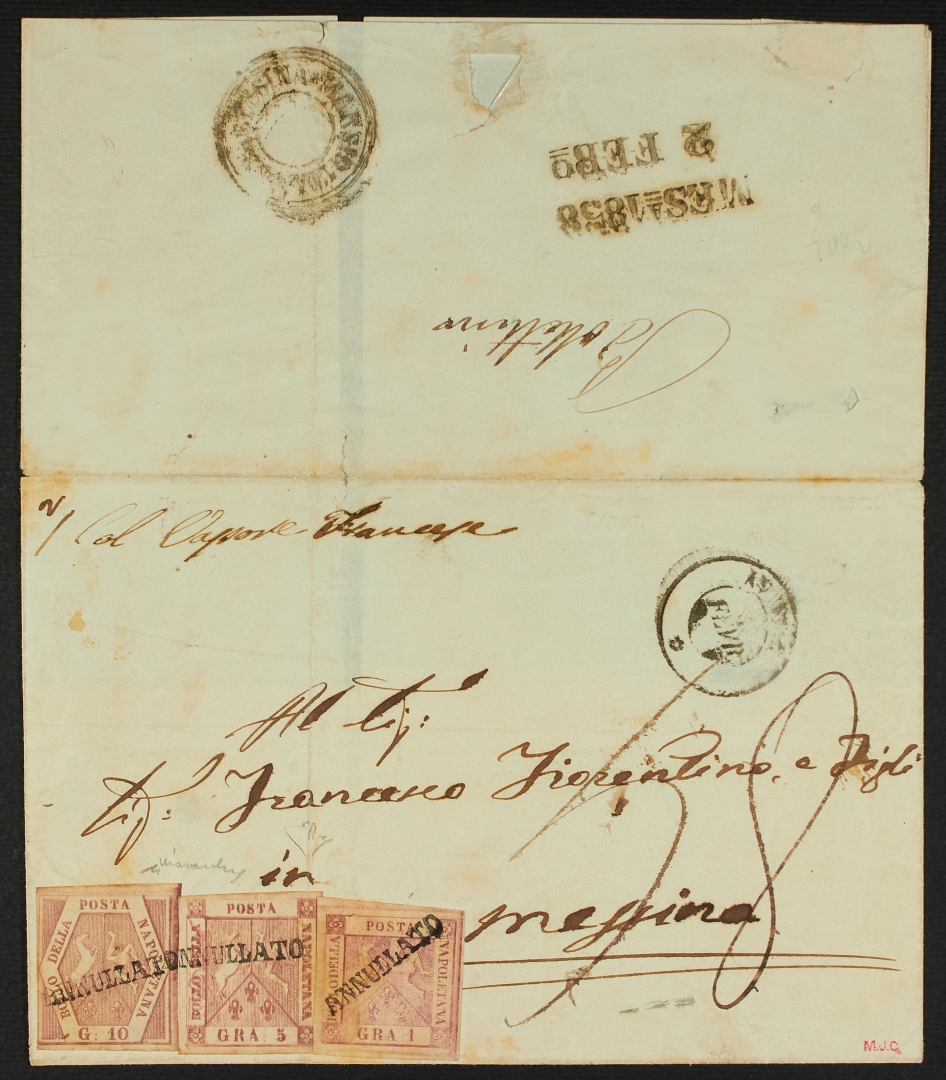 2 FEBO
MES A 1858
Bollettino
Col Vapore Francese
Al Sig:
Sig: Francesco Fiorentino, e Figli
in
Messina
BOLLO DELLA POSTA NAPOLETANA
G. 10
BOLLO DELLA POSTA NAPOLETANA
GRA. 5
BOLLO DELLA POSTA NAPOLETANA
GRA 1
ANNULLATO
ANNULLATO
ANNULLATO
M.J.C.